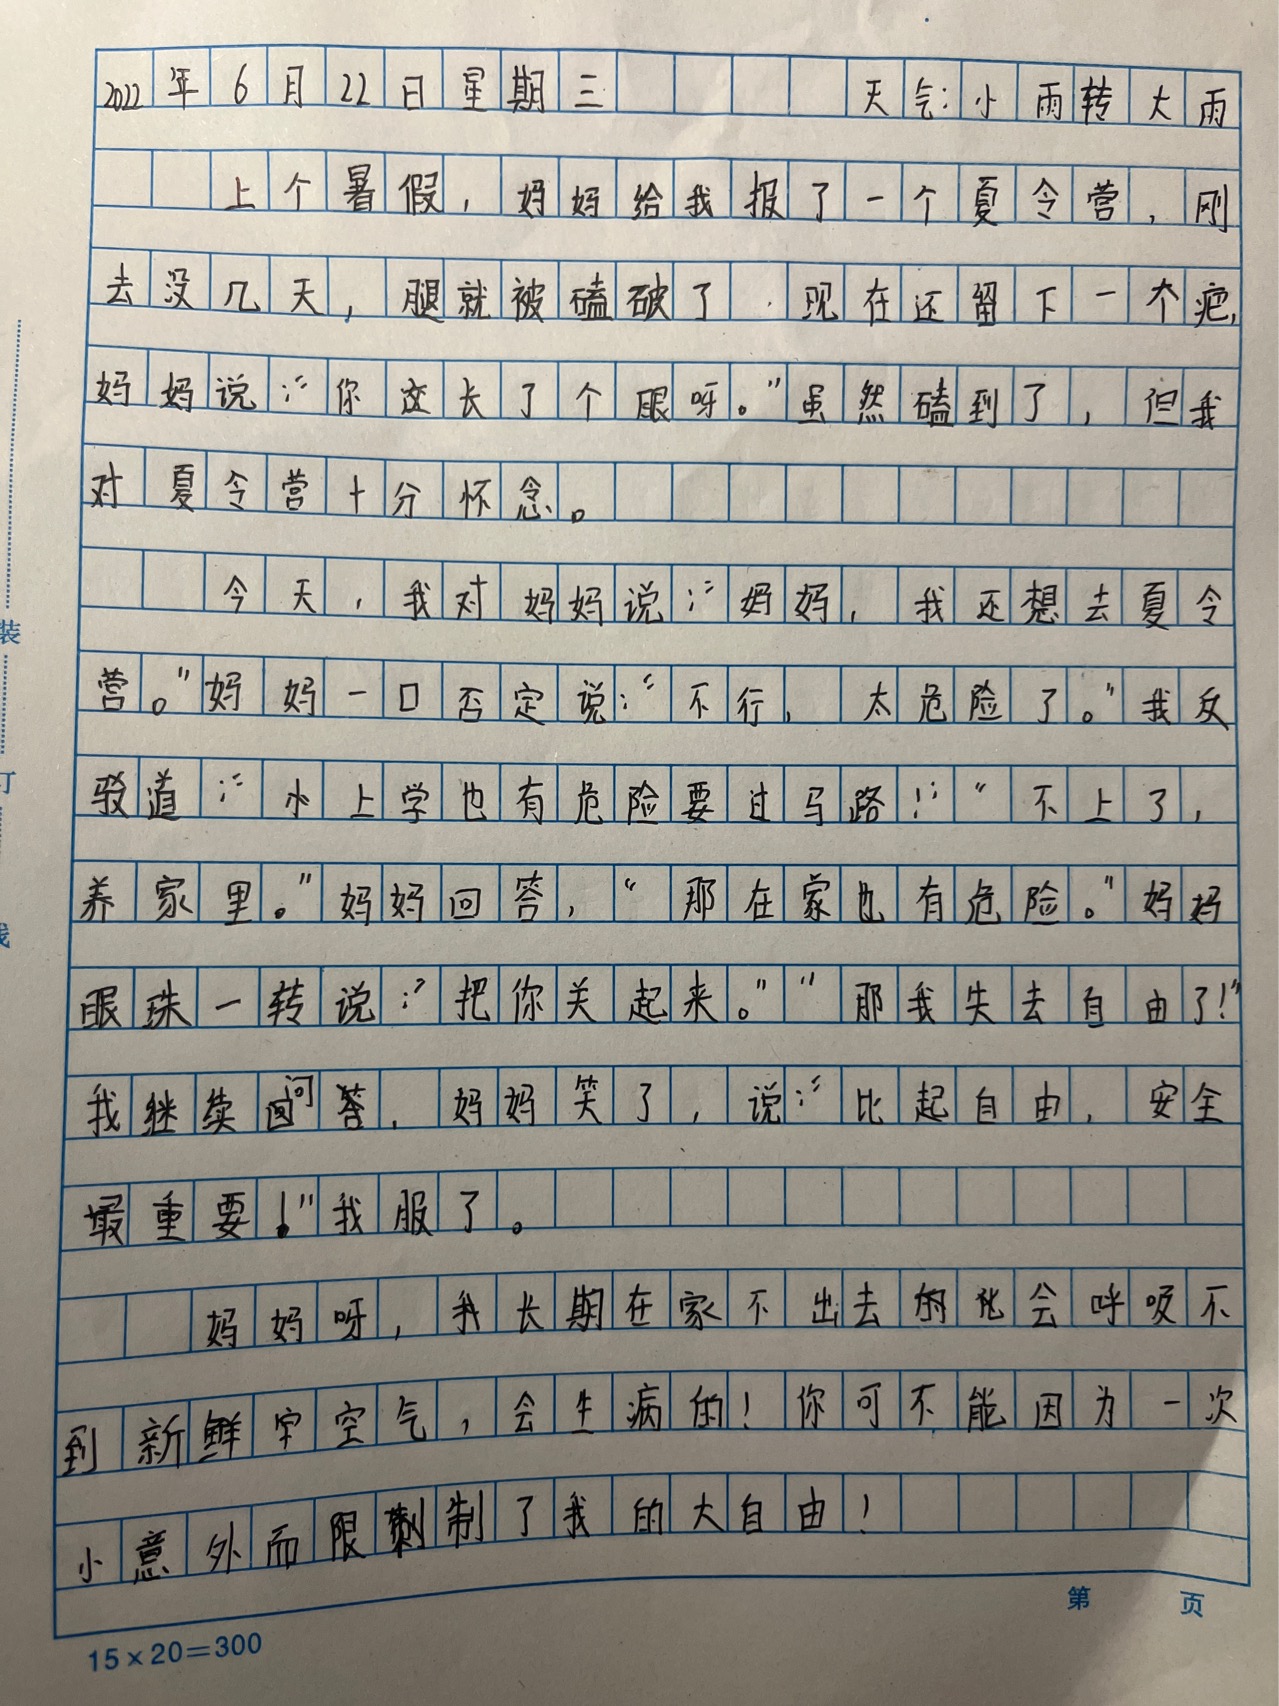 2022年6月22日星期三 天气:小雨转大雨
上个暑假,妈妈给我报了一个夏令营,刚
去没几天,腿就被磕破了.现在还留下一个疤,
妈妈说:“你这长了个眼呀。”虽然磕到了,但我
对夏令营十分怀念。
今天,我对妈妈说:“妈妈,我还想去夏令
营。”妈妈一口否定说:“不行,太危险了。”我反
驳道:“小上学也有危险要过马路!”“不上了,
养家里。”妈妈回答,“那在家也有危险。”妈妈
眼珠一转说:“把你关起来。”“那我失去自由了!”
我继续问答,妈妈笑了,说:“比起自由,安全
最重要!”我服了。
妈妈呀,我长期在家不出去的化会呼吸不
到新鲜空气,会生病的!你可不能因为一次
小意外而限制了我的大自由!
装
订
线
第 页
15×20=300